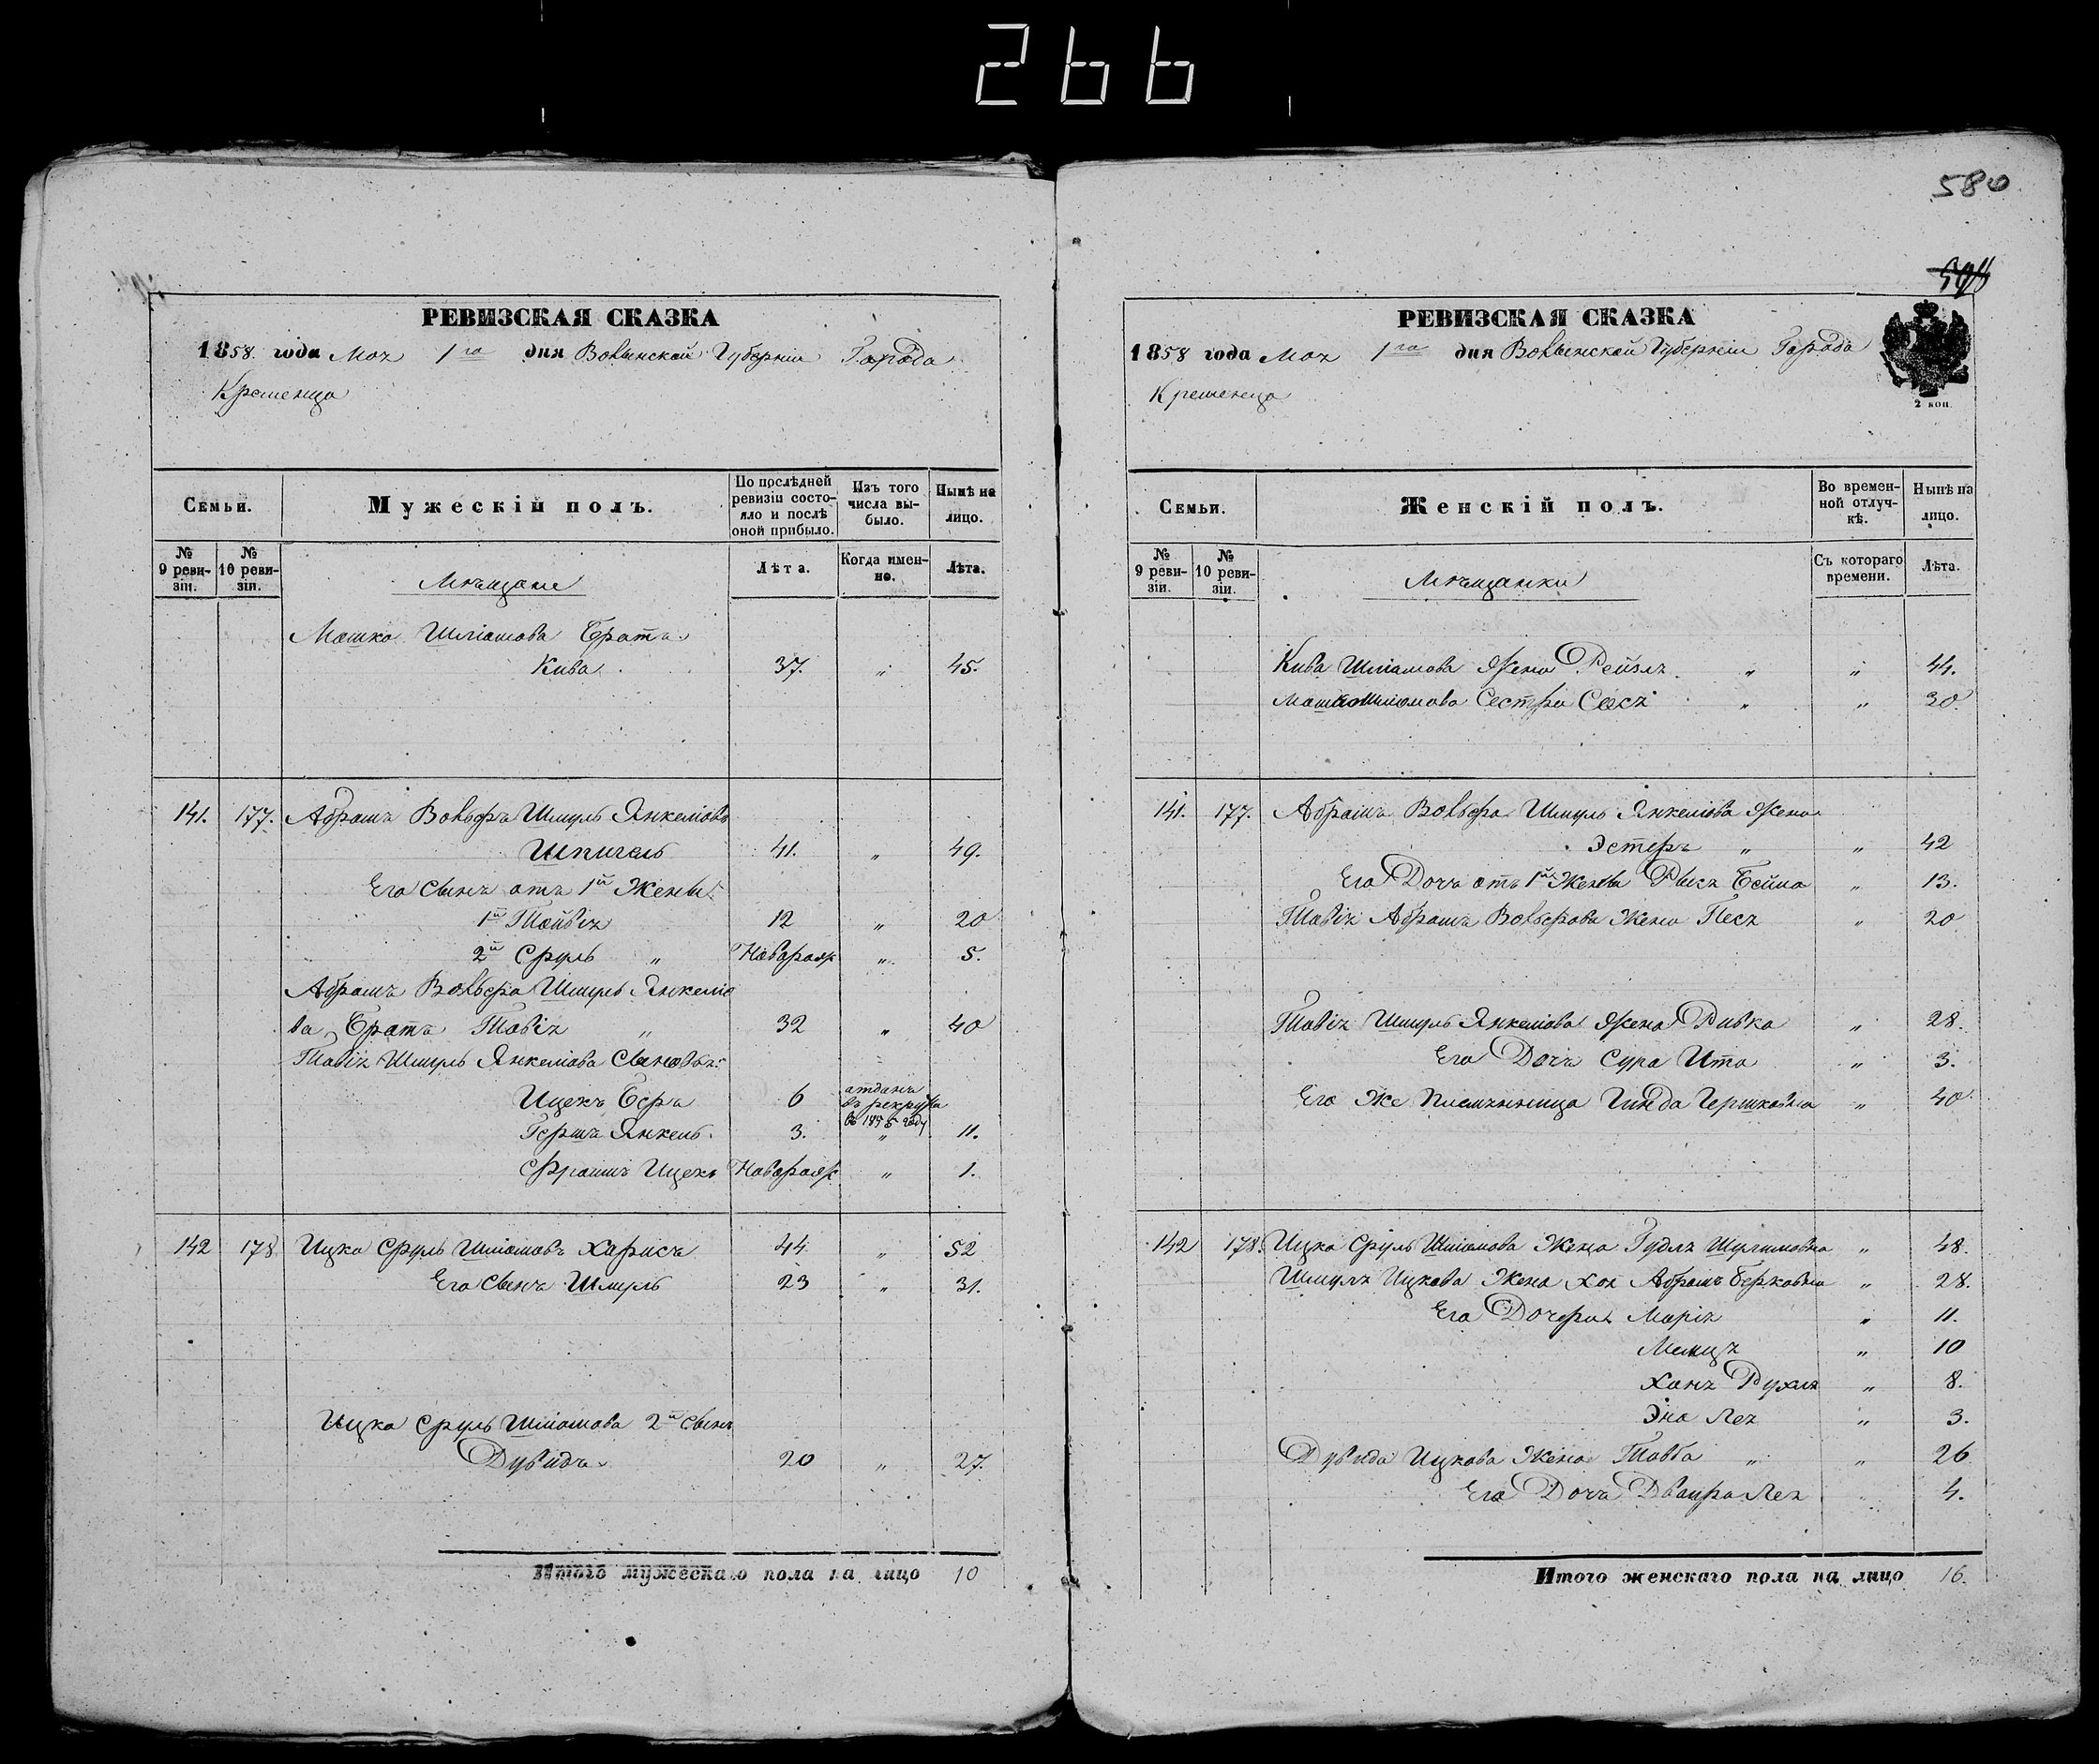 266
РЕВИЗСКАЯ СКАЗКА
1858. года Мая 1го дня Волынской Губерніи Города
Кременца
Семьи.
Мужескій полъ.
По послѣдней ревизіи состояло и послѣ оной прибыло.
Изъ того числа выбыло.
Нынѣ на лицо.
№ 9 ревизіи.
№ 10 ревизіи.
Мѣщане
Лѣта.
Когда именно.
Лѣта.
Мошка Шліомова Братъ
Кива 37. „ 45.
141. 177. Абрамъ Вольфъ Шмуль Янкеліовъ
Шпигель 41. „ 49.
Его сынъ отъ 1й Жены:
1й Тойвія 12 „ 20
2й Сруль „ Новорож „ 5.
Абрамъ Вольфа Шмуль Янкеліо
ва Братъ Товія „ 32 „ 40
Товія Шмуль Янкеліова Сыновья:
Ицекъ Беръ 6 отданъ въ рекруты въ 1855 году
Гершъ Янкель 3. „ 11.
Фроимъ Ицекъ Новорож „ 1.
142 178 Ицко Сруль Шліомовъ Харисъ 44 „ 52
Его сынъ Шмуль 23 „ 31.
Ицка Сруль Шліомова 2й сынъ
Дувидъ 20 „ 27.
Итого мужескаго пола на лицо 10
580
РЕВИЗСКАЯ СКАЗКА
1858 года Мая 1го дня Волынской Губерніи Города
Кременца
2 коп.
Семьи.
Женскій полъ.
Во временной отлучкѣ.
Нынѣ на лицо.
№ 9 ревизіи.
№ 10 ревизіи.
Мѣщанки
Съ котораго времени.
Лѣта.
Кива Шліомова Жена Рейзя „ „ 44.
Мошка Шліомова Сестра Сося „ „ 30
141. 177. Абрамъ Вольфа Шмуль Янкеліова Жена
Эстеръ „ „ 42
Его Дочь отъ 1й Жены Рыся Бейла „ 13.
Товія Абрамъ Вольфова Жена Песя „ 20
Товія Шмуль Янкеліова Жена Ривка „ 28.
Его Дочь Сура Ита „ 3.
Его же Племянница Гинда Гершковна „ 40
142 178. Ицка Сруль Шліомова Жена Гудля Шулимовна „ 48.
Шмуля Ицкова Жена Хая Абрамъ Берковна „ 28.
Его Дочери Марія „ 11.
„ 10
Хана Рухля „ 8.
Эна Лея „ 3.
Дувида Ицкова Жена Товба „ „ 26
Его Дочь Двойра Лея 4.
Итого женскаго пола на лицо 16.